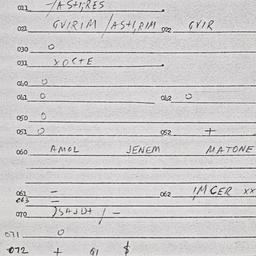 021 /ASTI,RES
021 GVIRIM /ASTI,RIM 022 GVIR
030 0
031 YOCTE
040 0
041 0 042 0
050 0
051 0 052 +
060 AMOL JENEM MATONE
061 – 062 IMGER XX
063 –
070 / –
071 0
072 + 91 $